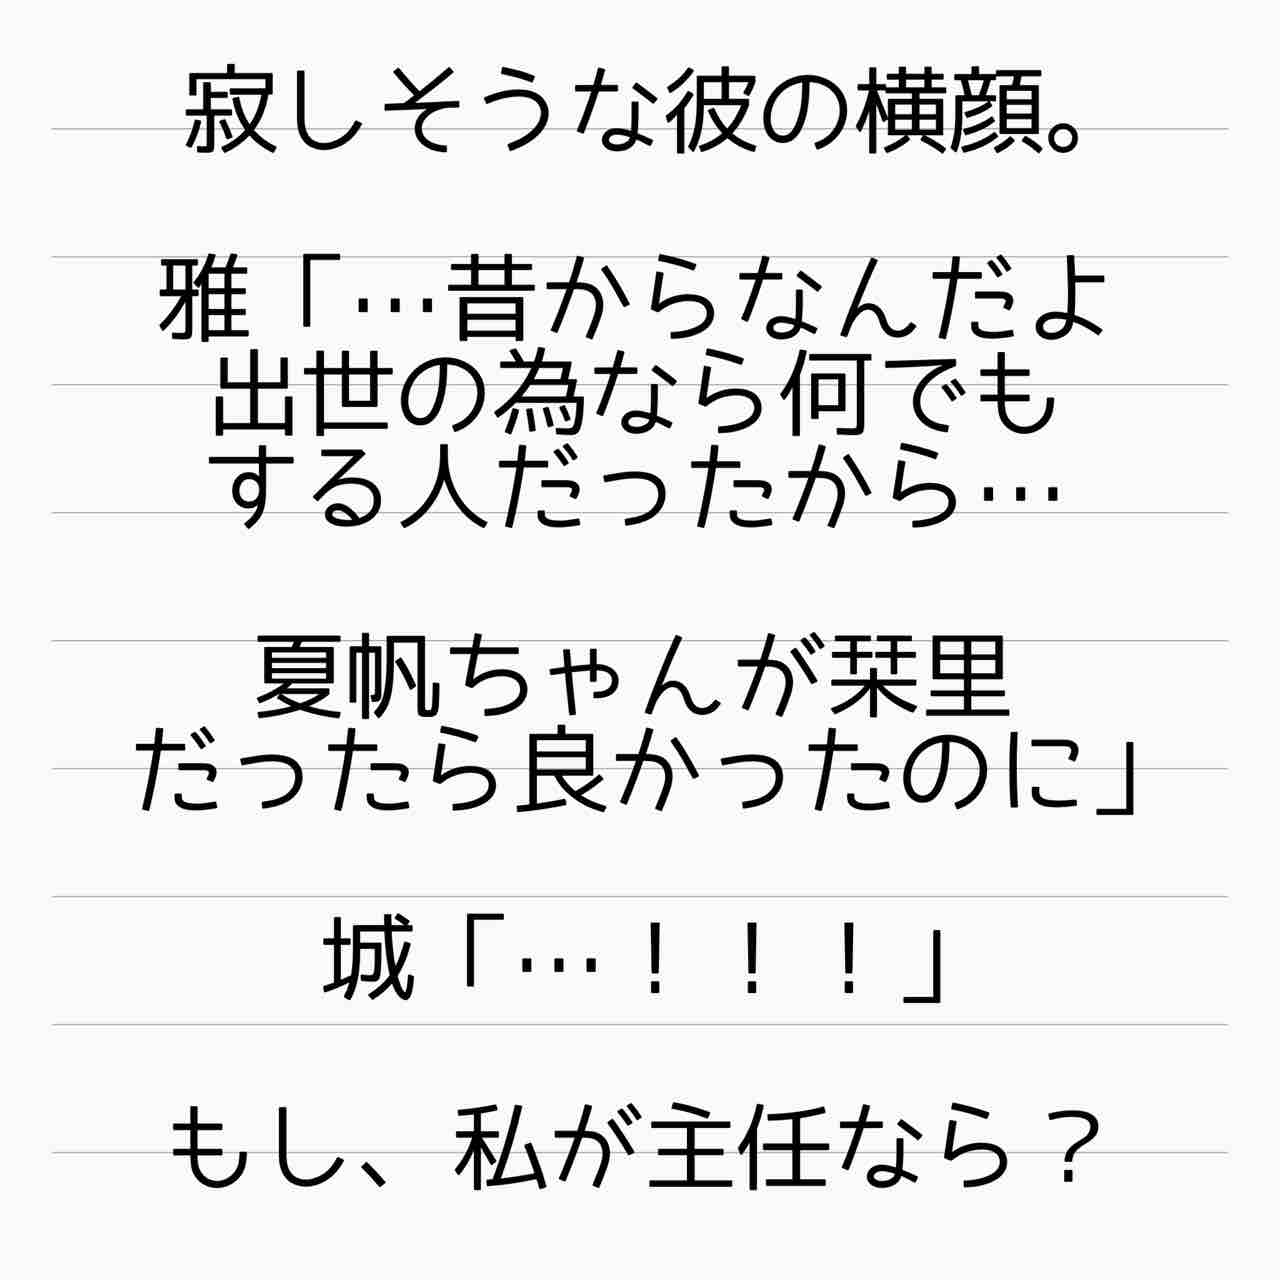 寂しそうな彼の横顔。
雅「…昔からなんだよ
出世の為なら何でも
する人だったから…
夏帆ちゃんが栞里
だったら良かったのに」
城「…！！！」
もし、私が主任なら？